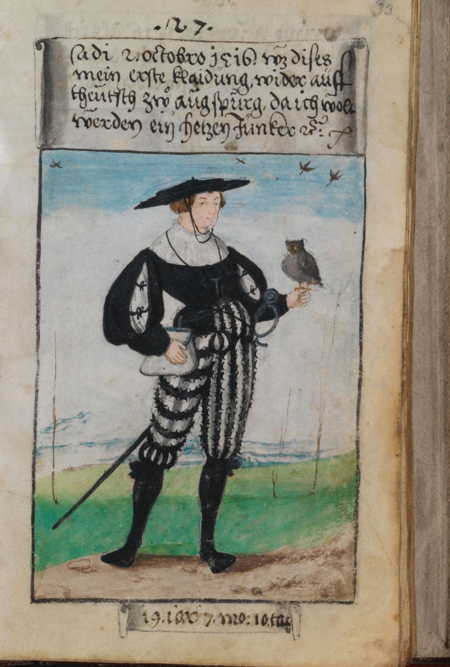 .27.
33
adi 2. octobro 1516. wz dises
mein erste klaidung, wider auff
theutsch zů augspurg, da ich wolt
werden ein hetzen Junker
19. iar 7. mo: 10. tag